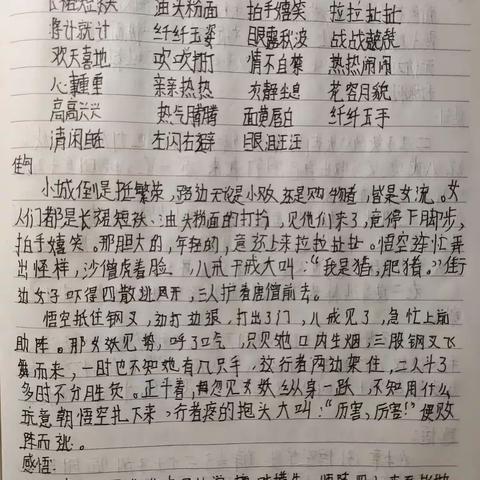 长裙短袄 油头粉面 拍手嬉笑 拉拉扯扯
将计就计 纤纤玉姿 眼露秋波 战战兢兢
欢天喜地 吹吹打打 情不自禁 热热闹闹
心事重重 亲亲热热 花容月貌
高高兴兴 热气腾腾 面黄唇白 纤纤玉手
清闲自在 左闪右避 眼泪汪汪
佳句
小城倒是挺繁荣，路边无论是小贩还是购物者，皆是女流。女
人们都是长裙短袄、油头粉面的打扮，见他们来了，竟停下脚步，
拍手嬉笑。那胆大的，年轻的，竟还上来拉拉扯扯。悟空连忙弄
出怪样，沙僧虎着脸，八戒干脆大叫：“我是猪，肥猪。”街
边女子吓得四散跳开，三人护着唐僧前去。
悟空抵住钢叉，边打边退，打出了门，八戒见了，急忙上前
助阵。那女妖见势，呼了口气，只见她口内生烟，三股钢叉飞
舞而来，一时也不知她有几只手，这行者两边架住，二人斗了
多时不分胜负。正斗着，忽见女妖纵身一跃，不知用什么
玩意朝悟空扎下来，行者疼的抱头大叫：“厉害，厉害！”便败
阵而逃。
感悟：